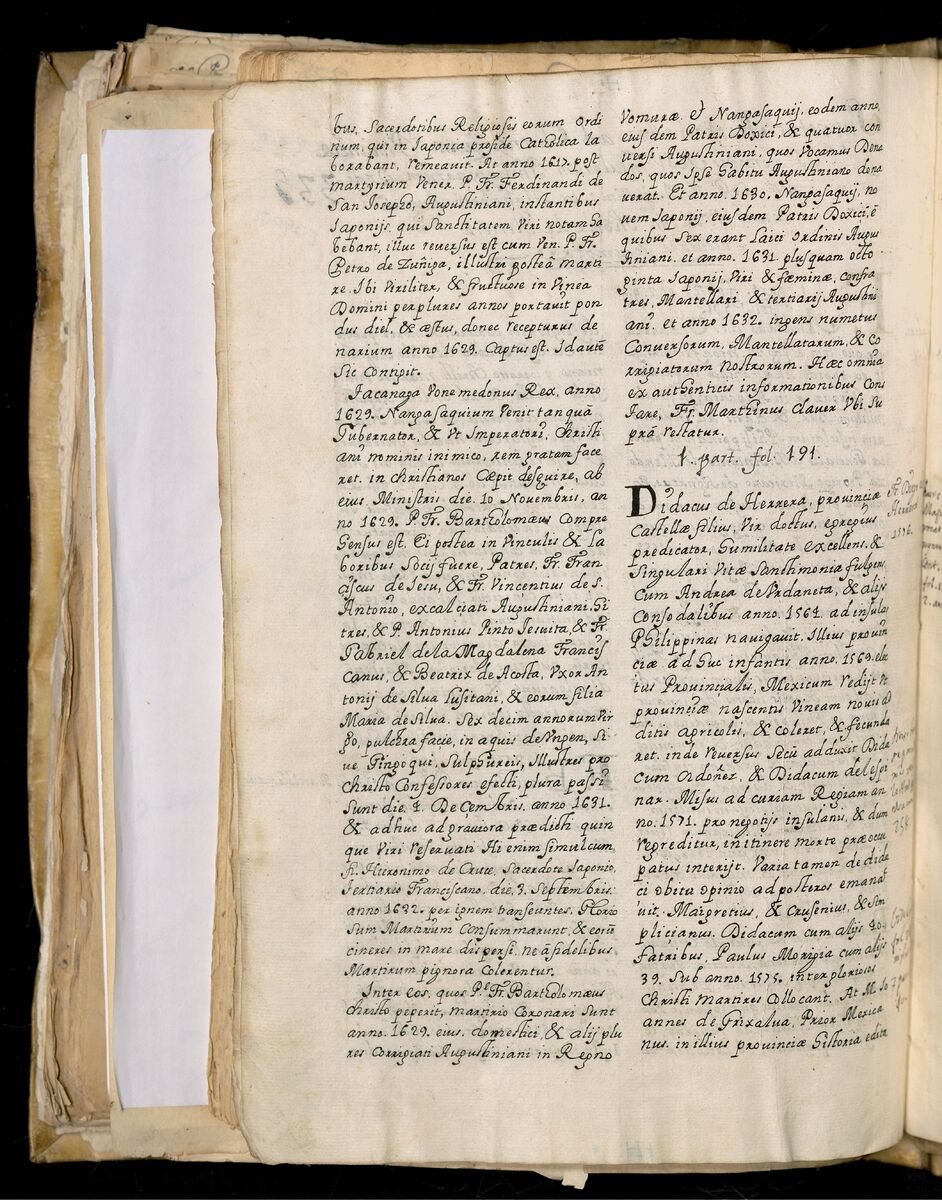 bus, Sacerdotibus Religiosis eorum Ordi
num, qui in Japonia pro fide Catholica la
borabant, remeavit. At anno 1617. post
martyrium Vener. P. Fr. Ferdinandi de
San Josepho, Augustiniani, instantibus
Japonijs, qui Sanctitatem Viri notam ha
bebant, illuc reversus est cum Ven. P. Fr.
Petro de Zuñiga, illustri posteà marti
re. Ibi Viriliter, & fructuose in Vinea
Domini per plures annos portavit pon
dus diei, & æstus, donec recepturus de
narium anno 1629. Captus est. Id autẽ
Sic Contigit.
Jacanaga Vonemedonus Rex, anno
1629. Nangasaquium Venit tanquã
Gubernator, & Vt Imperatori, Christi
ani nominis inimico, rem gratam face
ret. in christianos Cæpit desævire, ab
eius Ministris die. 10 Novembris, an
no 1629. P. Fr. Bartholomæus Compre
hensus est. Ei postea in Vinculis & la
boribus Socij fuere, Patres, Fr. Fran
ciscus de Jesu, & Fr. Vincentius de S.
Antonio, excalciati Augustiniani. Si
tres, & P. Antonius Pinto Jesuita, & Fr.
Gabriel de la Magdalena Francis
canus, & Beatrix de Acosta, Vxor An
tonij de Silua Lusitani, & eorum filia
Maria de Silua. Sex decim annorum Vir
go, pulchra facie, in aquis de Vngen, Si
ue Gingoqui, Sulphureis, Illustres pro
christo Confessores efecti, plura passi
Sunt die. 4. Decembris. anno 1631.
& adhuc ad graviora prædicti quin
que Viri reservati Hi enim simul cum
fr. Hieronimo de Cruce, Sacerdote Japonio,
Tertiario Franciscano, die, 3. Septembris.
anno 1632. per ignem transeuntes, Glorio
sum Martirium Consummarunt, & eorũ
cineres in mare dispersi, ne à fidelibus
Martirum pignora Colerentur.
Inter eos, quos P.e Fr. Bartholomæus
christo peperit, martirio Coronari Sunt
anno. 1629. eius, domestici, & alij plu
res Corrigiati Augustiniani in Regno
Vomuræ. et Nangasaquij, eodem anno,
eius dem Patris Doxici, & quatuor con
versi Augustiniani, quos Vocamus Dona
dos, quos Ipse habitu Augustiniano dona
verat. Et anno. 1630. Nangasaquij, no
uem Japonij, eius dem Patris Doxici, ẽ
quibus Sex erant Laici Ordinis Augus
tiniani. et anno. 1631. plusquam octo
ginta Japonij, Viri & fæminæ, confra
tres, Mantellati & tertiarij Augustini
ani. et anno 1632. ingens numerus
Conversorum, Mantellatarum, & Co
rrigiatorum nostrorum. Hæc omnia
ex authenticis informationibus Cons
tare, Fr. Marthinus claver Vbi Su
prà testatur.
1. part. fol. 191.
Didacus de Herrera, provinciæ
Castellæ filius, Vir doctus, egregius
predicator, humilitate excellens, &
Singulari Vitæ Santimonia fulgens,
Cum Andrea de Vrdaneta, & alijs
Consodalibus anno. 1564. ad insulas
Philippinas navigauit. Illius provin
ciæ ad huc infantis anno. 1569. elec
tus Provincialis, Mexicum redijt Vt
provinciæ nascentis Vineam novis ad
ditis agricolis, & coleret, & fecunda
ret. inde reversus Secũ adduxit Dida
cum Ordoñez, & Didacum del espi
nar. Misus ad curiam Regiam an
no. 1571. pro negotijs insulanis, & dum
regreditur, in itinere morte præoccu
patus interijt. Varia tamen de dida
ci obitu opinio ad posteros emana
uit. Maigretius, & Crusenius, & Sim
plicianus. Didacum cum alijs 40.
Fatribus, Paulus Morigia cum alijs
39. Sub anno. 1575. inter gloriosos
Christi martires Collocant. At M. Jo
annes de Grixalua, Prior Mexica
nus. in illius provinciæ historia edita
Fr. Diego
Herrera
1576.